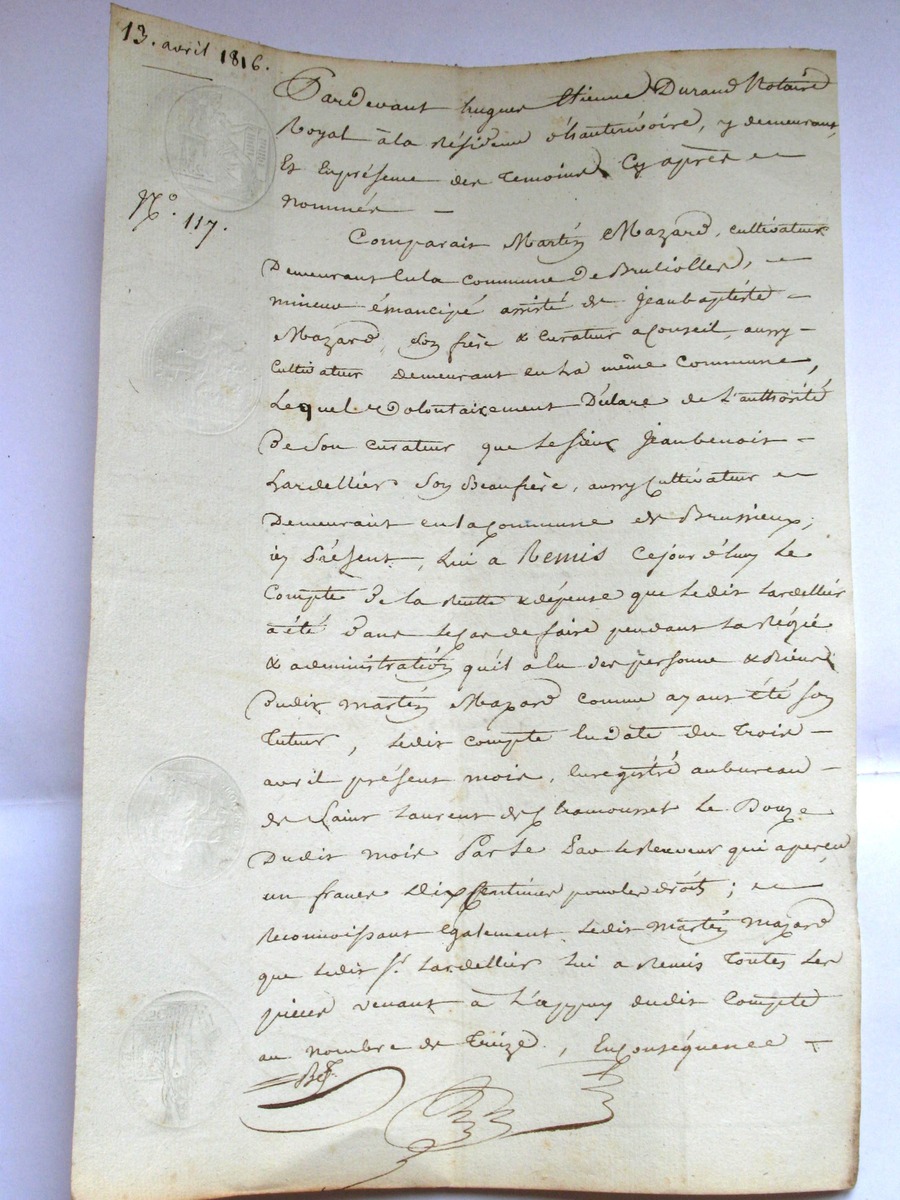 13. avril 1816.
N.º 117.
Pardevant hugues Etienne Durand Notaire
Royal à la résidence d'hauterivoire, y demeurant,
Et Enprésence des Temoins Cy après
nommés
Comparait Martin Mazard, cultivateur
Demeurant En la commune De Brullioller,
mineur émancipé assisté de Jeanbaptiste
Mazard, son frère & curateur a conseil, aussy
cultivateur demeurant en la même commune,
Lequel volontairement Déclare de l'authorité
De son curateur que le sieur Jeanbenoit
Lardellier son Beaufrère, aussy cultivateur
Demeurant en la commune de Brussieux,
icy Présent, lui a Remis Cejour d'huy Le
Compte De la recette & dépense que Ledit Lardellier
a été Dans le cas de faire pendant La Régie
& administration qu'il a eu des personne & Biens
Dudit martin Mazard comme ayant été son
Tuteur, Ledit compte En date du Trois
avril présent mois, Enregistré aubureau
de Saint Laurent de Chamousset Le Douze
Dudit mois Par le receveur qui aperçu
un franc Dix Centimes pour les droits;
Reconnoissant également Ledit martin mazard
que Ledit S.r Lardellier Lui a Remis Toutes Les
pièces venant à L'appuy dudit Compte
au nombre de Treize, En conséquence